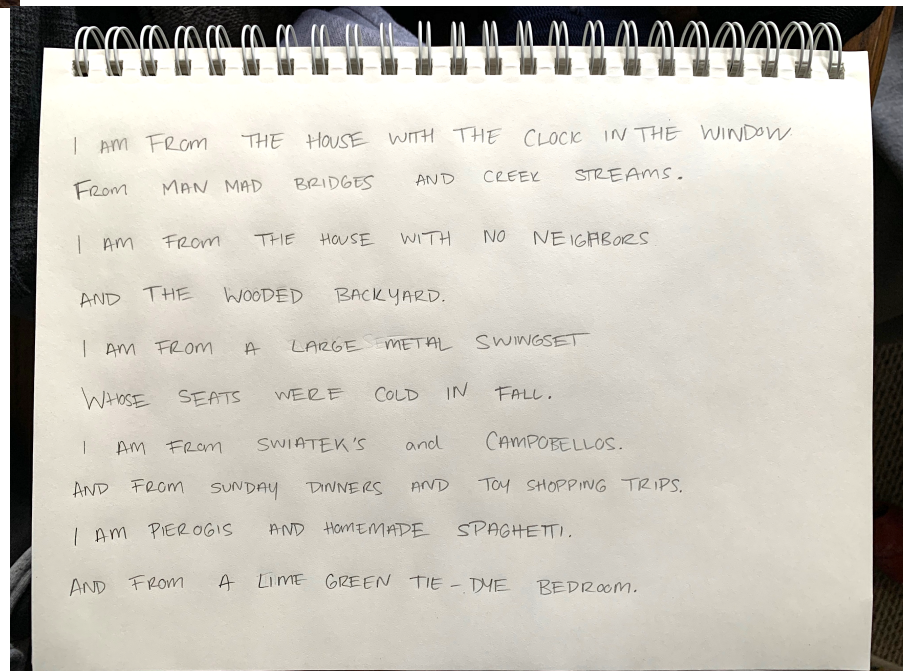 I AM FROM THE HOUSE WITH THE CLOCK IN THE WINDOW
FROM MAN MAD BRIDGES AND CREEK STREAMS.
I AM FROM THE HOUSE WITH NO NEIGHBORS
AND THE WOODED BACKYARD.
I AM FROM A LARGE METAL SWINGSET
WHOSE SEATS WERE COLD IN FALL.
I AM FROM SWIATEK'S and CAMPOBELLOS.
AND FROM SUNDAY DINNERS AND TOY SHOPPING TRIPS.
I AM PIEROGIS AND HOMEMADE SPAGHETTI.
AND FROM A LIME GREEN TIE-DYE BEDROOM.